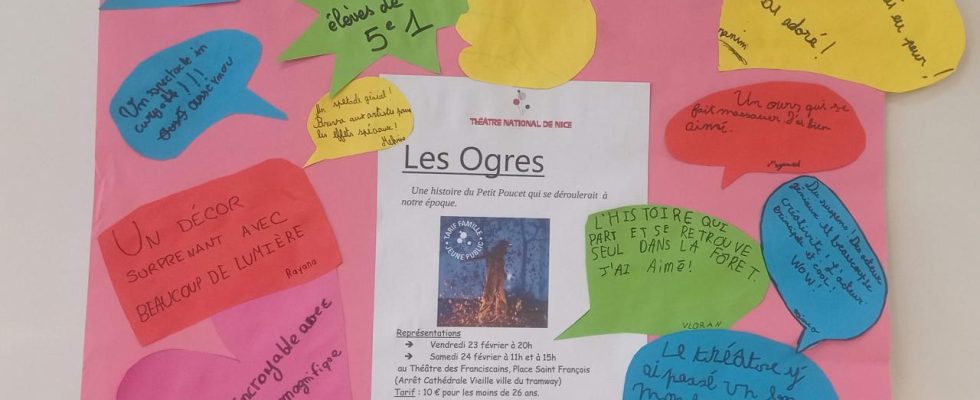 élèves de
5e 1
ai eu peur !
ai adoré !
Un spectacle in
croyable !!!
Un spectacle génial !
Bravo aux artistes pour
les effets spéciaux !
THÉÂTRE NATIONAL DE NICE
Les Ogres
Une histoire du Petit Poucet qui se déroulerait à
notre époque.
TARIF FAMILLE
JEUNE PUBLIC
Représentations
➔ Vendredi 23 février à 20h
➔ Samedi 24 février à 11h et à 15h
au Théâtre des Franciscains, Place Saint François
(Arrêt Cathédrale Vieille ville du tramway)
Tarif : 10 € pour les moins de 26 ans.
Un ours qui se
fait massacrer j'ai bien
aimé.
UN DÉCOR
SURPRENANT AVEC
BEAUCOUP DE LUMIÈRE
Rayana
L'HISTOIRE QUI
PART ET SE RETROUVE
SEUL DANS LA FORÊT.
J'AI AIMÉ !
VLORAN
Du suspens ! Des acteurs
géniaux et beaucoup de
créativité, L'acteur
principal et cool !
WOW !
incroyable avec
magnifique
Le théâtre j'y
ai passé un bon